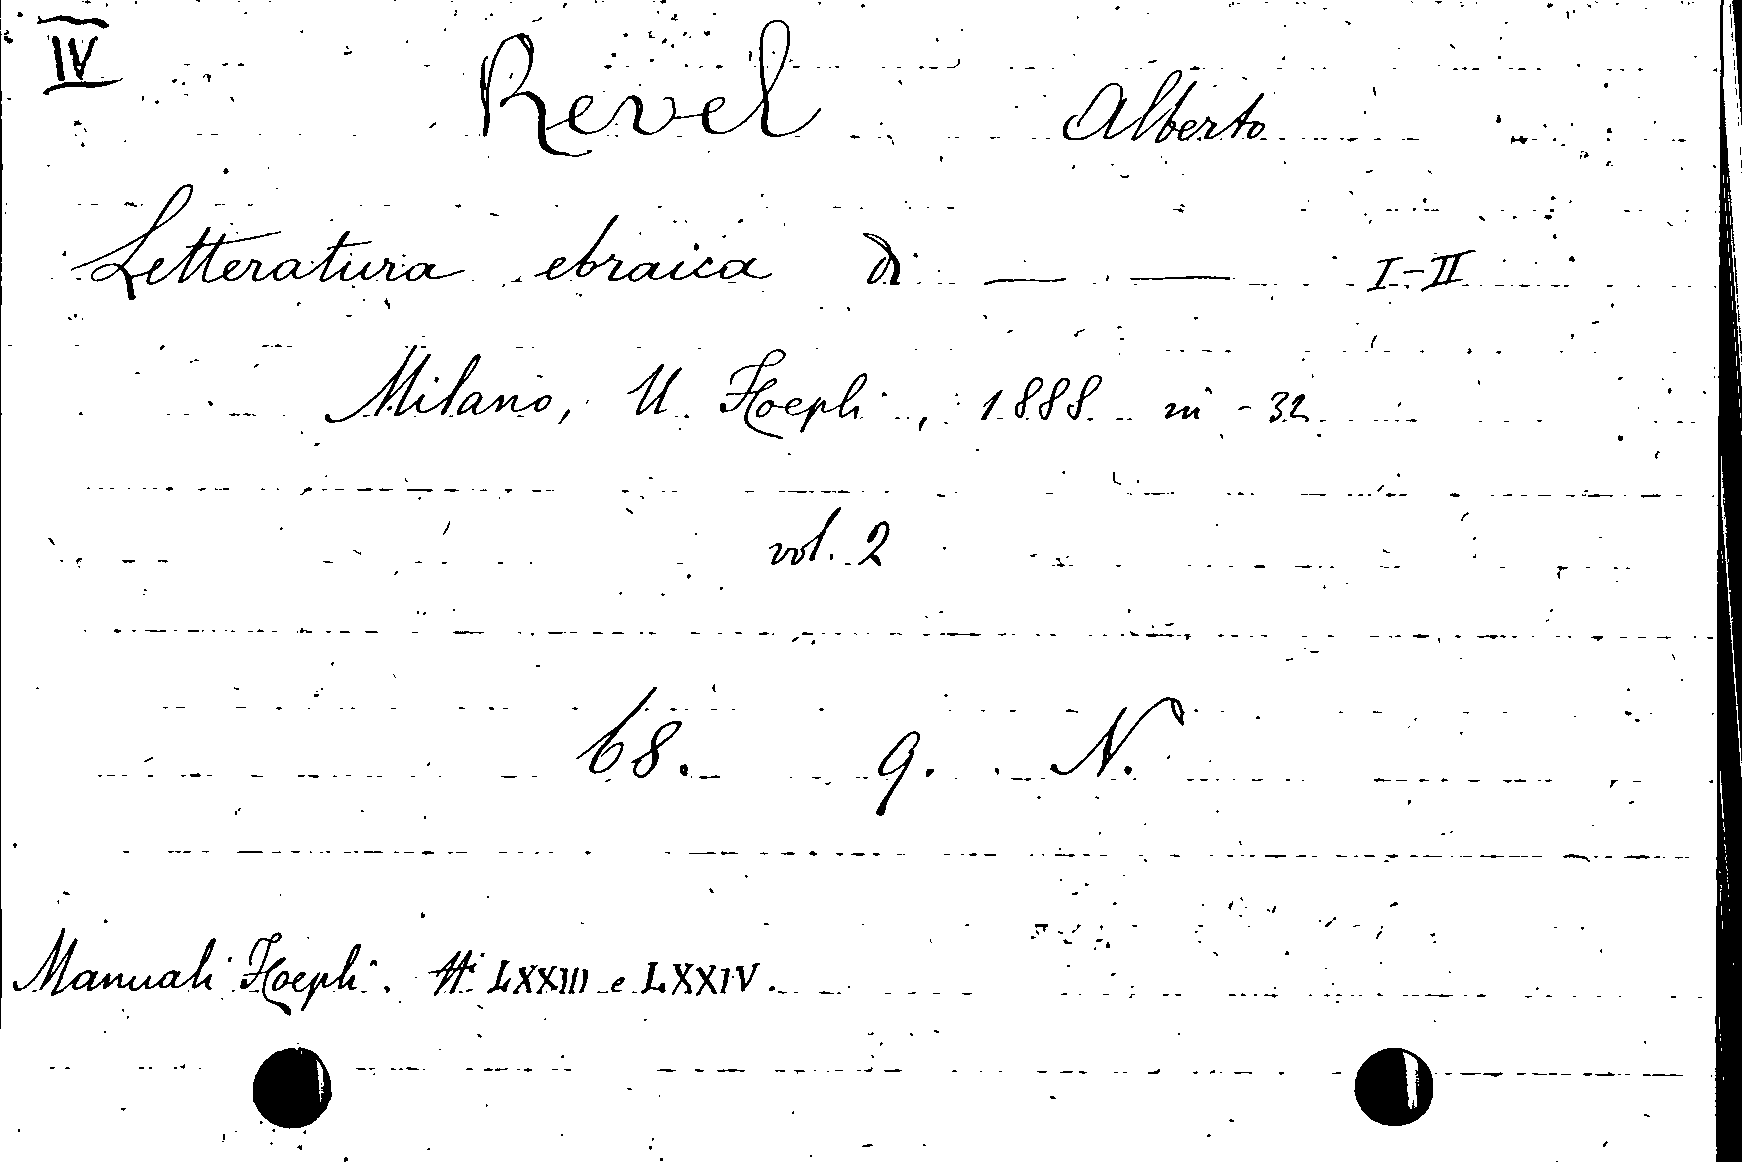 IV
Revel Alberto
Letteratura ebraica di — — I-II
Milano, U. Hoepli, 1888 in-32
vol. 2
68. 9. N.
Manuali Hoepli. Ni LXXIII e LXXIV.